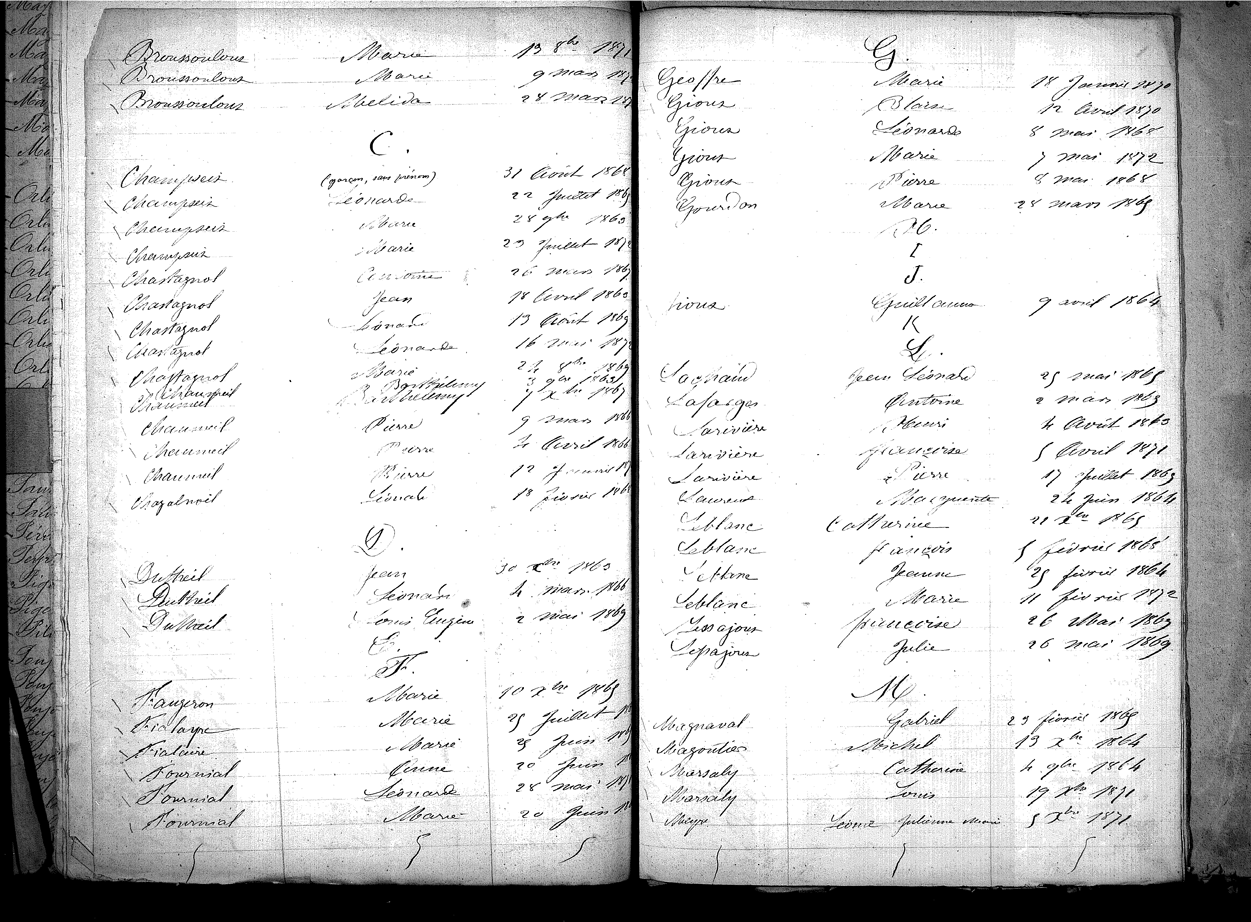 Broussouloux Marie 13 8bre 1871
Broussouloux Marie 9 mars 187
Broussouloux Mélida 28 mars 187
C.
Champseix (garçon, sans prénom) 31 Août 1868
Champseix Léonarde 22 Juillet 1869
Champseix Marie 28 9bre 1863
Champseix Marie 29 Juillet 1872
Chastagnol Antoine 26 mars 1869
Chastagnol Jean 18 Avril 1863
Chastagnol Léonard 13 Août 1869
Chastagnol Léonarde 16 mai 1872
Chastagnol Marie 24 8bre 1869
Chaumeil Barthélemy 3 9bre 1863
Chaumeil Barthélemy 7 Xbre 1869
Chaumeil Pierre 9 mars 1866
Chaumeil Pierre 4 Avril 1866
Chaumeil Pierre 12 Janvier 18
Chazalnoël Léonard 18 février 186
D.
Dutheil Jean 30 Xbre 1863
Dutheil Léonard 4 mars 1866
Dutheil Louis Eugène 2 mai 1869
E.
F.
Faugeron Marie 10 Xbre 1865
Fialaire Marie 25 Juillet
Fialaire Marie 25 Juin 18
Fournial Anne 20 Juin 1
Fournial Léonarde 28 mai 187
Fournial Marie 20 Juin 1
G.
Geoffre Marie 18 Janvier 1870
Gioux Blaise 12 Avril 1870
Gioux Léonarde 8 mai 1868
Gioux Marie 7 mai 1872
Gioux Pierre 8 mai 1868
Gourdon Marie 28 mars 1865
H.
I
J.
Guillaume 9 avril 1864
K
L.
Lachaud Jean Léonard 25 mai 1865
Lafarges Antoine 2 mars 1863
Larivière Henri 4 Août 1863
Larivière françoise 5 Avril 1871
Larivière Pierre 17 Juillet 1869
Laurens Marguerite 24 Juin 1864
Leblanc Catherine 21 Xbre 1865
Leblanc françois 5 février 1868
Leblanc Jeanne 25 février 1864
Leblanc Marie 11 février 1872
Lessajoux françoise 26 Mai 1869
Lessajoux Julie 26 mai 1869
M.
Magnaval Gabriel 23 février 1865
Magoutier Michel 13 Xbre 1864
Marsaly Catherine 4 9bre 1864
Marsaly Louis 19 Xbre 1871
Meyre Julienne Marie 5 Xbre 1871